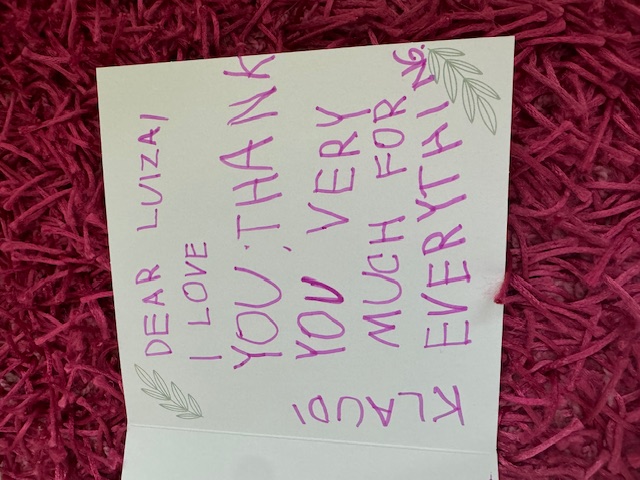 DEAR LUIZA,
I LOVE
YOU; THANK
YOU VERY
MUCH FOR
EVERYTHING.
KLAUDI